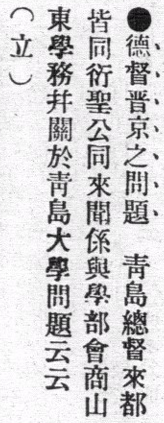 ●德督晋京之問題　青島總督來都
皆同衍聖公同來聞係與學部會商山
東學務幷關於青島大學問題云云
（立）